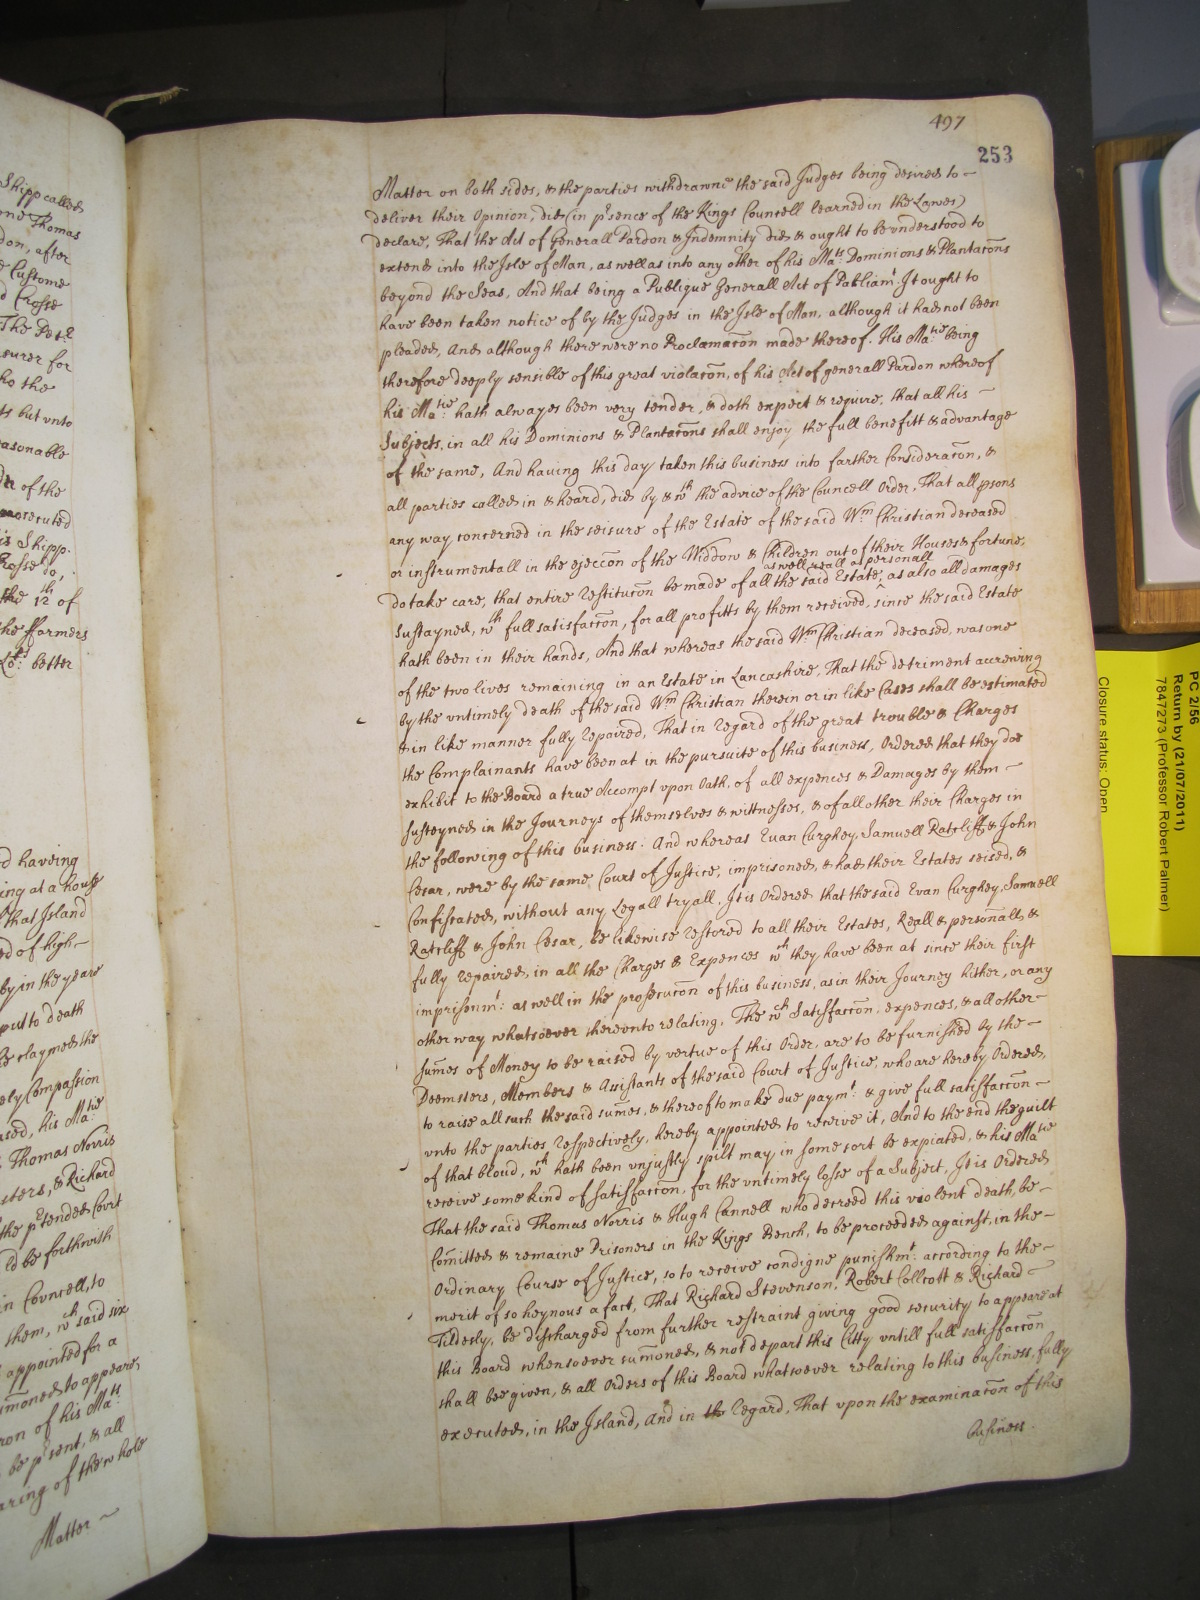 497
253
Matter on both sides, & the parties withdrawne the said Judges being desired to
deliver their Opinion, did (in p'sence of the Kings Councell learned in the Lawes)
declare, That the Act of Generall Pardon & Indemnity did & ought to be vnderstood to
extend into the Isle of Man, as well as into any other of his Ma:ts Dominions & Plantacōns
beyond the Seas, And that being a Publique Generall Act of Parliam:t It ought to
have been taken notice of by the Judges in the Isle of Man, although it had not been
pleaded, And although there were no Proclamacōn made thereof. His Ma:tie being
therefore deeply sensible of this great violacōn, of his Act of generall Pardon whereof
his Ma:tie hath alwayes been very tender, & doth expect & require, that all his
Subjects, in all his Dominions & Plantacōns shall enjoy the full benefitt & advantage
of the same, And having this day taken this business into farther Consideracōn, &
all parties called in & heard, did by & wth the advice of the Councell Order, That all psons
any way concerned in the seisure of the Estate of the said Wm Christian deceased
or instrumentall in the ejeccōn of the Widdow & Children out of their Houses & fortune,
as well reall as personall
do take care, that entire Restitucōn be made of all the said Estate, ^ as also all damages
sustayned, wth full satisfaccōn, for all profitts by them received, since the said Estate
hath been in their hands, And that whereas the said Wm Christian deceased, was one
of the two lives remaining in an Estate in Lancashire, That the detriment accrewing
by the vntimely death of the said Wm Christian therein or in like Cases shall be estimated
& in like manner fully repaired, That in regard of the great trouble & Charges
the Complainants have been at in the pursuite of this business, Ordered that they doe
exhibit to the Board a true Accompt vpon Oath, of all expences & Damages by them
susteyned in the Journeys of themselves & wittnesses, & of all other their Charges in
the following of this business: And whereas Evan Curghey, Samuell Ratcliff & John
Cesar, were by the same, Court of Justice, imprisoned, & had their Estates seised, &
Confiscated, without any Legall tryall. It is Ordered that the said Evan Curghey, Samuell
Ratcliff & John Cesar, be likewise restored to all their Estates, Reall & personall &
fully repaired, in all the Charges & Expences wch they have been at since their first
imprisonm:t as well in the prosecucōn of this business, as in their Journey hither, or any
other way whatsoever therevnto relating. The wch Satisfaccōn, expences, & all other
sumes of Money to be raised by vertue of this Order, are to be furnished by the
Deemsters, Members & Assistants of the said Court of Justice, who are hereby Ordered,
to raise all such the said sumes, & thereof to make due paym:t & give full satisfaccōn
vnto the parties respectively, hereby appointed to receive it, And to the end the guilt
of that bloud, wch hath been vnjustly spilt may, in some sort be expiated, & his Matie
receive some kind of satisfaccōn, for the vntimely losse of a Subject, It is Ordered
That the said Thomas Norris & Hugh Cannell who decreed this violent death, be
Comitted & remaine Prisoners in the Kings Bench, to be proceeded against, in the
Ordinary Course of Justice, so to receive condigne punishm:t according to the
merit of so heynous a fact, That Richard Stevenson, Robert Collcott & Richard
Tildesly, be discharged from further restraint giving good security to appeare at
this Board whensoever sumoned, & not depart this Citty vntill full satisfaccōn
shall bee given, & all Orders of this Board whatsoever relating to this business, fully
executed, in the Island, And in the regard, That vpon the examinacōn of this
business
Shipp called
one Thomas
don, after
Custome
Crosse
The Pet:r
surer for
the
ts but vnto
easonable
of the
prosecuted
Shipp.
the 12th of
the ffarmers
better
haveing
ing at a house
that Island
ed of high
by in the yeare
put to death
he claymed the
ely Compassion
ased, his Ma:tie
Thomas Norris
sters, & Richard
the p'tended Court
ld be forthwith
in Councell, to
them, wch said six
appointed for a
umoned to appeare,
con of his Ma:ts
be p'sent, & all
aring of the whole
Matter
PC 2/56
Return by (21/07/2011)
7847273 (Professor Robert Palmer)
Closure status: Open